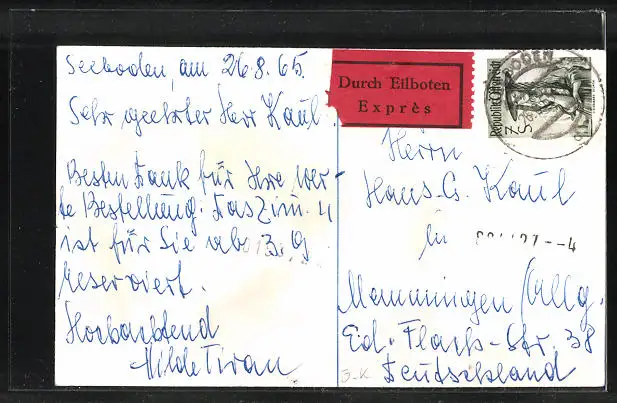 Seeboden, am 26.8.65.
Sehr geehrter Herr Kaul!
Besten Dank für Ihre wer-
te Bestellung. Das Zim. 4
ist für Sie ab 3.9
reserviert.
Hochachtend
Hilde Tiran
Durch Eilboten
Exprès
Republik Österreich
S 7
BODEN
Herrn
Hans-G. Kaul
in
Memmingen /Allg.
Ed. Flach-Str. 38
Deutschland